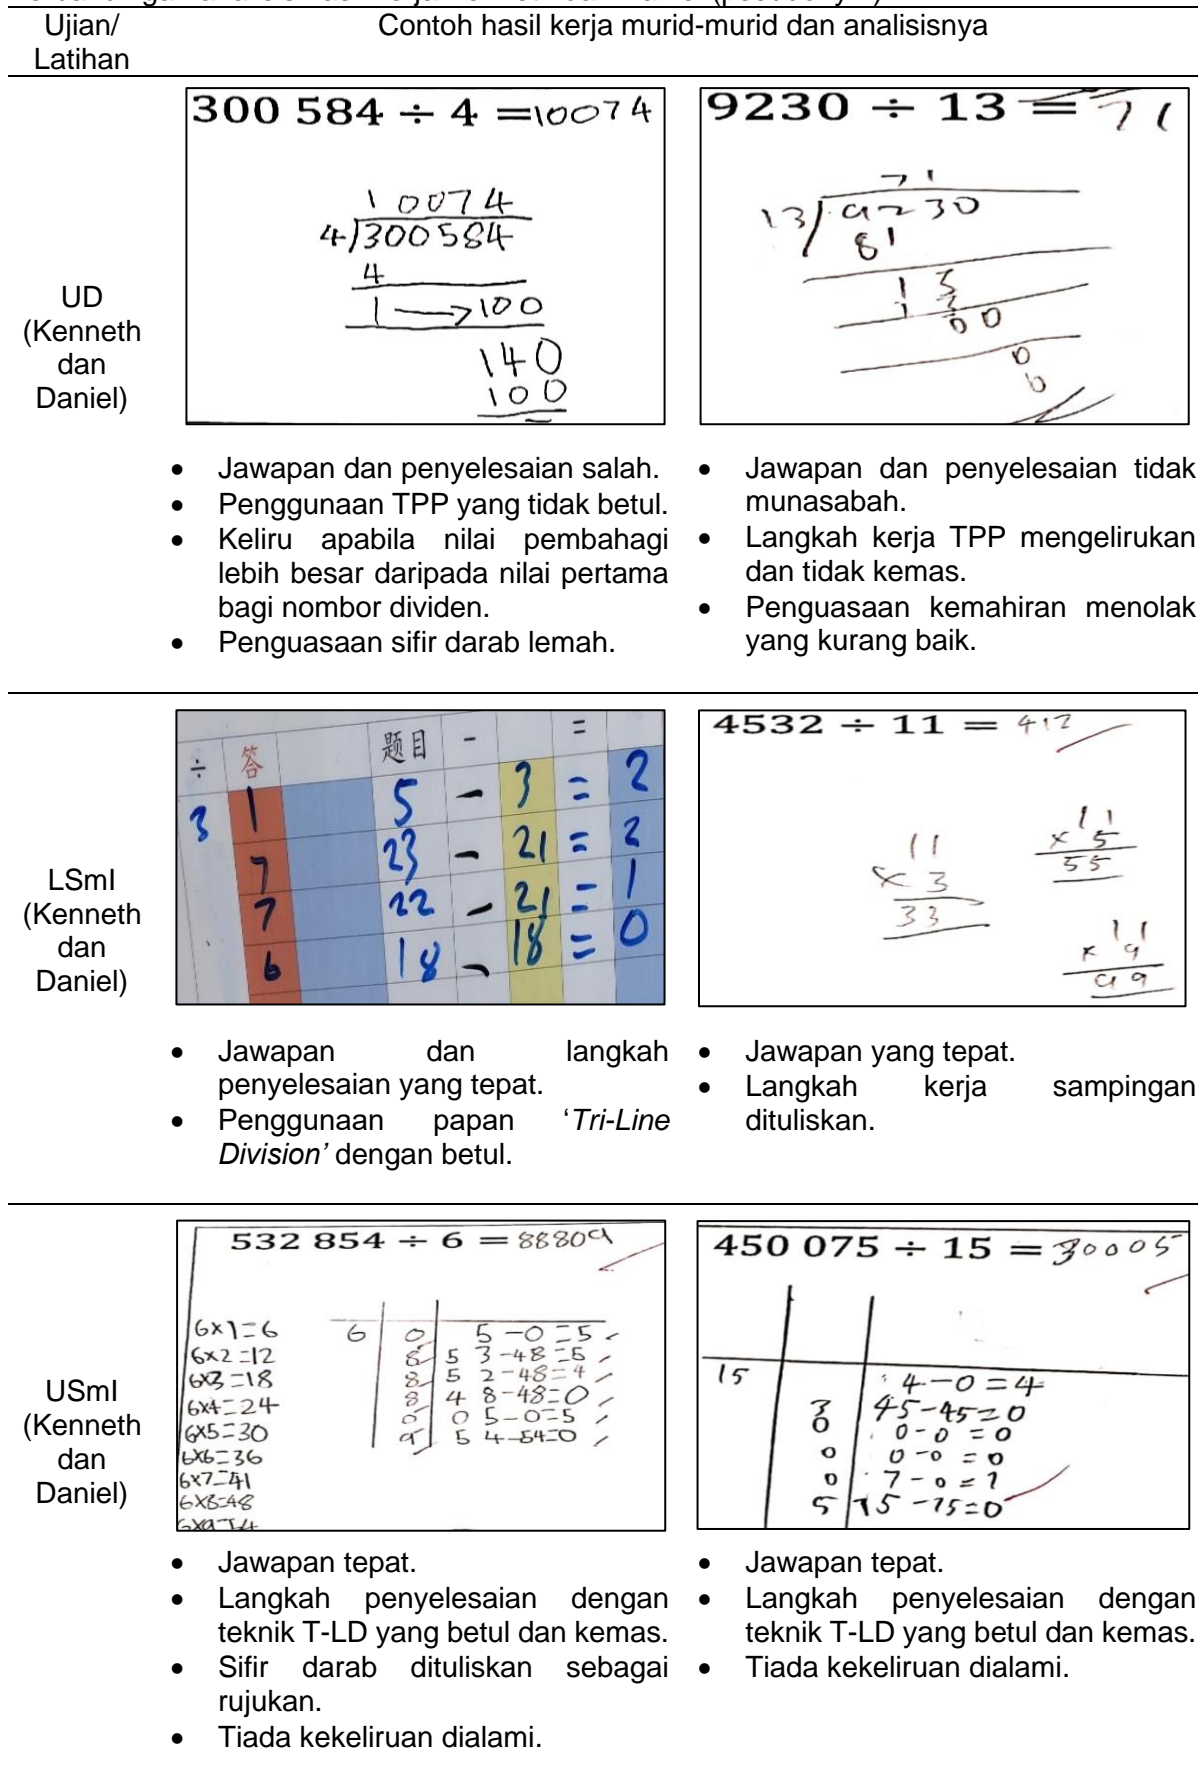 Ujian/
Latihan
Contoh hasil kerja murid-murid dan analisisnya
UD
(Kenneth
dan
Daniel)
300 584 ÷ 4 = 10074
10074
4 300584
4
1 → 100
140
100
9230 ÷ 13 = 71
71
13 9230
81
13
13
00
0
0
• Jawapan dan penyelesaian salah.
• Penggunaan TPP yang tidak betul.
• Keliru apabila nilai pembahagi
lebih besar daripada nilai pertama
bagi nombor dividen.
• Penguasaan sifir darab lemah.
• Jawapan dan penyelesaian tidak
munasabah.
• Langkah kerja TPP mengelirukan
dan tidak kemas.
• Penguasaan kemahiran menolak
yang kurang baik.
LSmI
(Kenneth
dan
Daniel)
÷ 答 题目 - =
3 1 5 - 3 = 2
7 23 - 21 = 2
7 22 - 21 = 1
6 18 - 18 = 0
4532 ÷ 11 = 412
11
× 3
33
11
× 5
55
11
× 9
99
• Jawapan dan langkah
penyelesaian yang tepat.
• Penggunaan papan ‘Tri-Line
Division’ dengan betul.
• Jawapan yang tepat.
• Langkah kerja sampingan
dituliskan.
USmI
(Kenneth
dan
Daniel)
532 854 ÷ 6 = 88809
6×1=6
6×2=12
6×3=18
6×4=24
6×5=30
6×6=36
6×7=41
6×8=48
6×9=54
6 0 5-0=5
8 5 3-48=5
8 5 2-48=4
8 4 8-48=0
0 0 5-0=5
9 5 4-54=0
450 075 ÷ 15 = 30005
15
4-0=4
3 45-45=0
0 0-0=0
0 0-0=0
0 7-0=7
5 75-75=0
• Jawapan tepat.
• Langkah penyelesaian dengan
teknik T-LD yang betul dan kemas.
• Sifir darab dituliskan sebagai
rujukan.
• Tiada kekeliruan dialami.
• Jawapan tepat.
• Langkah penyelesaian dengan
teknik T-LD yang betul dan kemas.
• Tiada kekeliruan dialami.